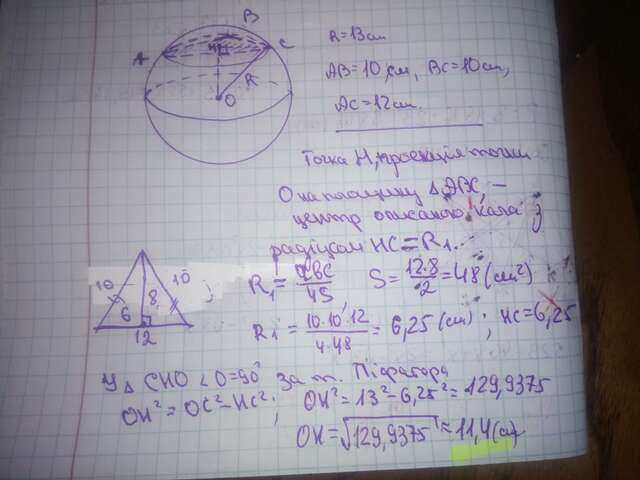 B
A
C
H
R
O
R=13см
AB=10 см, BC=10см,
AC=12см.
Точка H, проекція точки
O на площину △ABC, —
центр описаного кола з
радіусом HC=R₁.
10 10
8
6
12
; R₁ = abc/4S, S = 12·8/2 = 48 (см²)
R₁ = 10·10·12/4·48 = 6,25 (см) ; HC=6,25
У △ CHO ∠O=90° за т. Піфагора
OH² = OC²-HC²; OH² = 13²-6,25² = 129,9375
OH = √129,9375 ≈ 11,4(см)